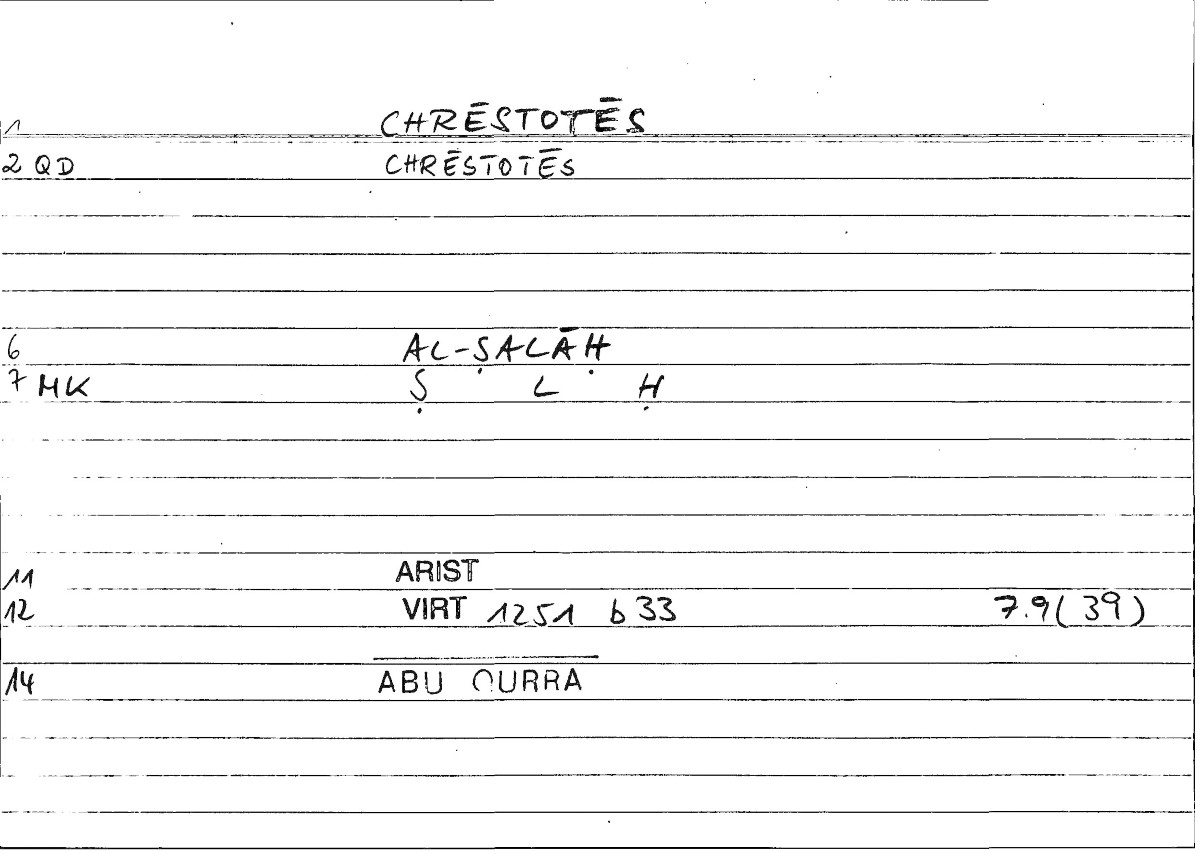 1 CHRĒSTOTĒS
2 QD CHRĒSTOTĒS
6 AL-ṢALĀḤ
7 MK Ṣ L Ḥ
11 ARIST
12 VIRT 1251 b 33 7.9(39)
14 ABU QURRA